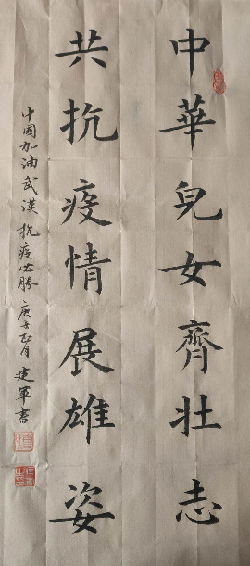 中華兒女齊壯志
共抗疫情展雄姿
中国加油武漢抗疫必勝庚子正月建軍書